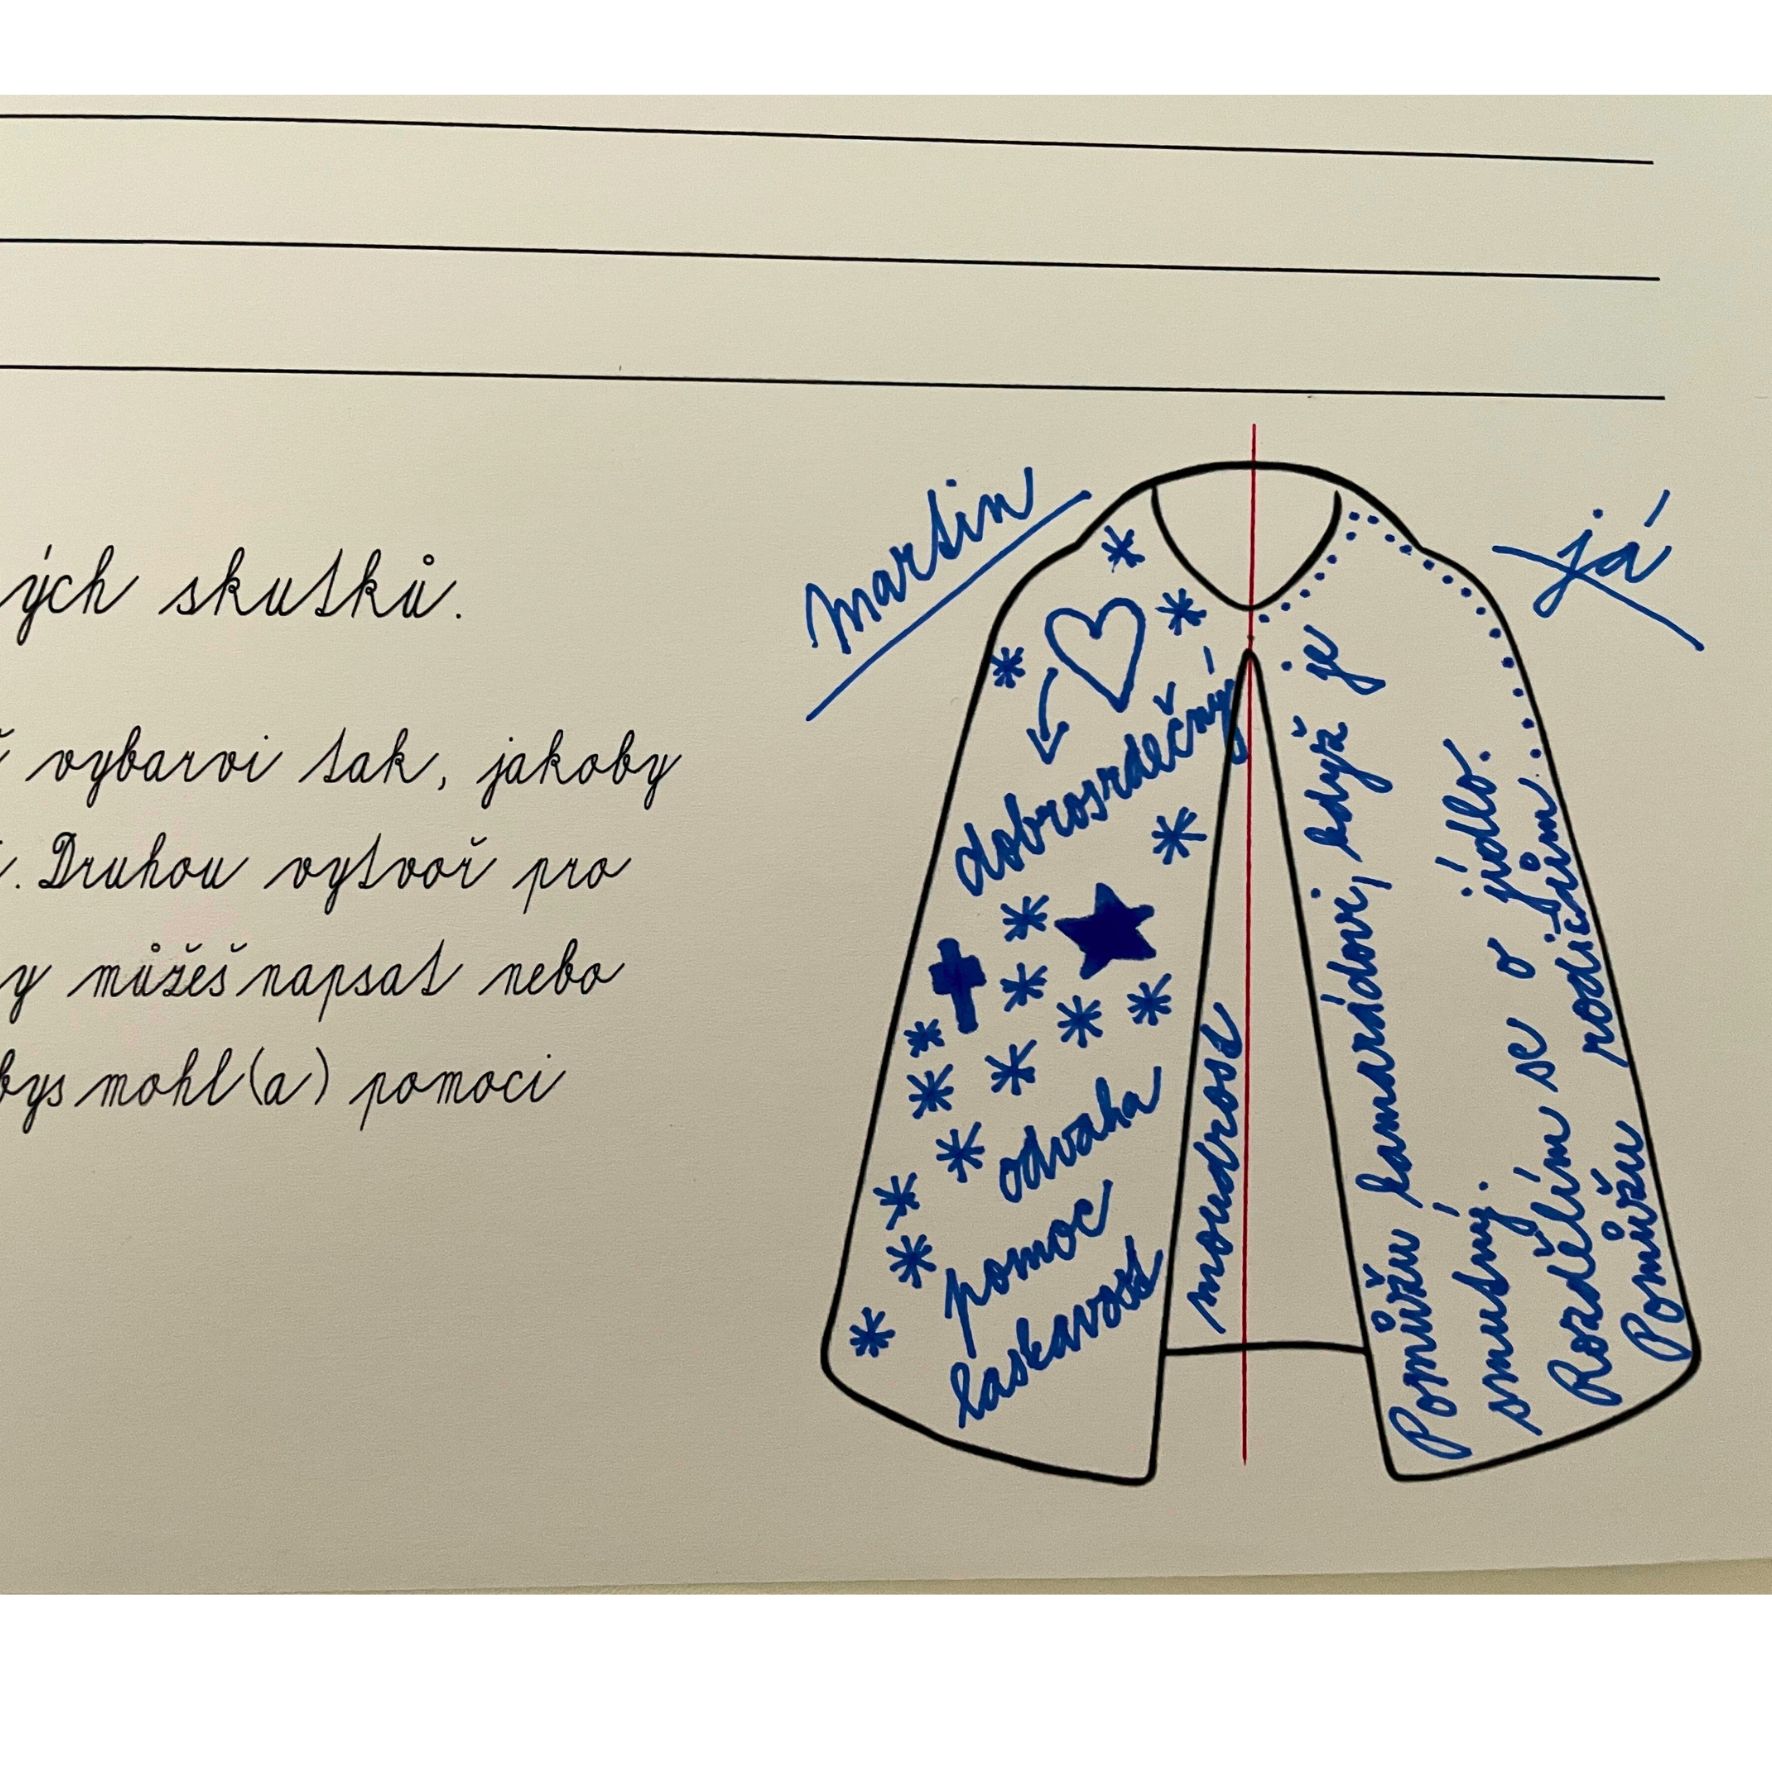 ých skutků.
vybarvi tak, jakoby
. Druhou vytvoř pro
y můžeš napsat nebo
bys mohl(a) pomoci
Martin
dobrosrdečný
odvaha
pomoc
laskavost
moudrost
já
Pomůžu kamarádovi, když je
smutný.
Rozdělím se o jídlo.
Pomůžu rodičům jiným.